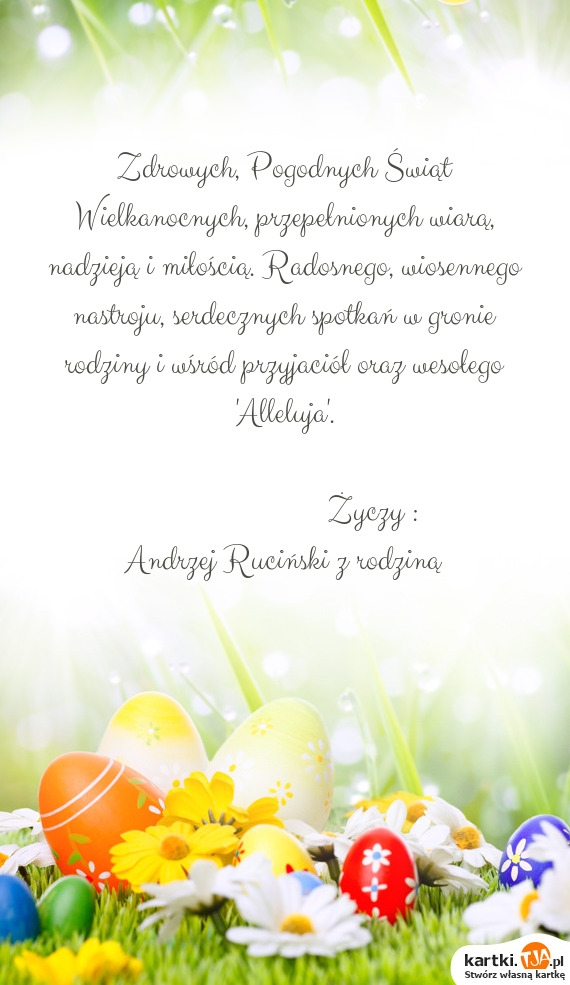 Zdrowych, Pogodnych Świąt
Wielkanocnych, przepełnionych wiarą,
nadzieją i miłością. Radosnego, wiosennego
nastroju, serdecznych spotkań w gronie
rodziny i wśród przyjaciół oraz wesołego
'Alleluja'.
Życzy :
Andrzej Ruciński z rodziną
kartki.TJA.pl
Stwórz własną kartkę